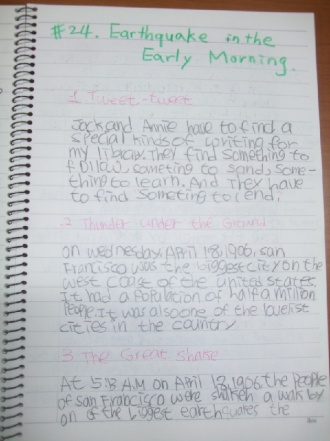 #24. Earthquake in the
Early Morning.
1 Tweet-Tweet
Jack and Annie have to find a
special kinds of writing for
my library. They find something to
follow, someting to sands some-
thing to learn. And They have
to find someting to lend.
2 Thunder under the Ground
on wednesday, April 18, 1906, san
Francisco was the biggest city on the
west coast of the united states
It had a Population of half a million
People. It was also one of the lovelist
cities in the country
3 The Great shake
At 5:13 A.M on April 18, 1906, the People
of san Francisco were shaken a wak by
on of the biggest earthquakes the